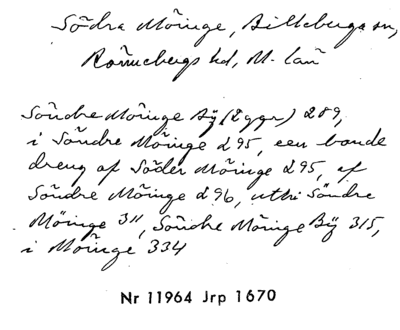 Södra Möinge, Billeberga sn,
Rönnebergs hd, M. län
Söndre Möinge Bÿ (2 ggr) 289,
i Söndre Möinge 295, een bonde
dreng af Söder Möinge 295, af
Söndre Möinge 296, uthi Söndre
Möinge 311, Söndre Möinge Bÿ 315,
i Möinge 334
Nr 11964 Jrp 1670